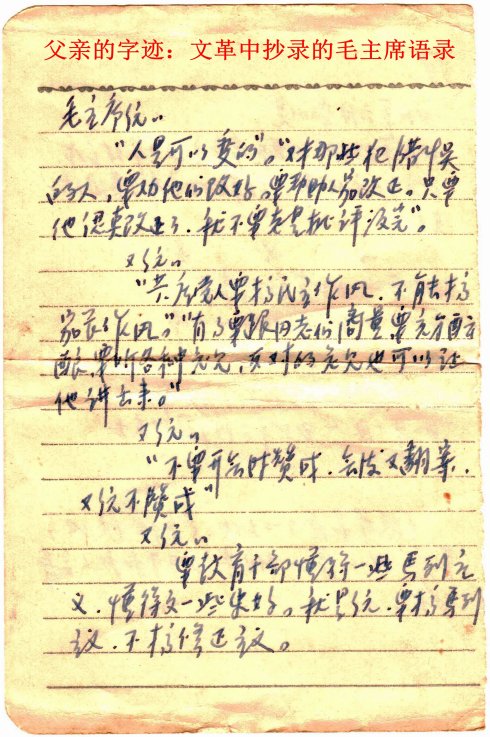 父亲的字迹：文革中抄录的毛主席语录
毛主席说：
"人是可以变的"。"对那些犯错误
的人，要劝他们改好，要帮助人家改正。只要
他认真改正了，就不要老是批评没完"。
又说：
"共产党人要搞民主作风，不能搞
家长作风。""有事要跟同志们商量，要充分酝
酿，要听各种意见，反对的意见也可以让
他讲出来。"
又说：
"不要开会时赞成，会后又翻案，
又说不赞成"
又说：
要教育干部懂得一些马列主
义，懂得多一些更好。就是说，要搞马列
主义，不搞修正主义。